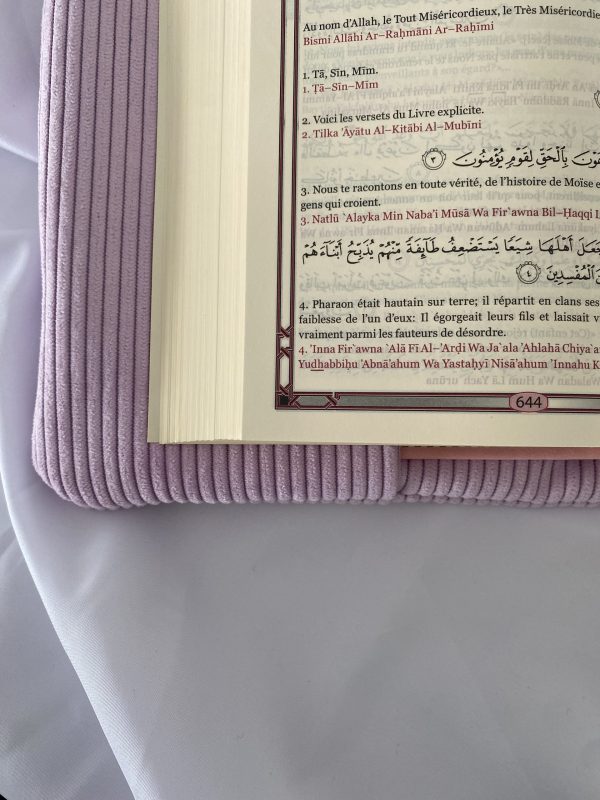 Au nom d'Allah, le Tout Miséricordieux, le Très Miséricordie
Bismi Allāhi Ar–Raḥmāni Ar–Raḥīmi
1. Tā, Sīn, Mīm.
1. Ṭā–Sīn–Mīm
2. Voici les versets du Livre explicite.
2. Tilka 'Āyātu Al–Kitābi Al–Mubīni
بِٱلْحَقِّ لِقَوْمٍ يُؤْمِنُونَ ٣
3. Nous te racontons en toute vérité, de l'histoire de Moïse e
gens qui croient.
3. Natlū `Alayka Min Naba'i Mūsā Wa Fir`awna Bil–Ḥaqqi L
أَهْلَهَا شِيَعًا يَسْتَضْعِفُ طَآئِفَةً مِّنْهُمْ يُذَبِّحُ أَبْنَآءَهُمْ
ٱلْمُفْسِدِينَ ٤
4. Pharaon était hautain sur terre; il répartit en clans ses
faiblesse de l'un d'eux: Il égorgeait leurs fils et laissait v
vraiment parmi les fauteurs de désordre.
4. 'Inna Fir`awna `Alā Fī Al–'Arḍi Wa Ja`ala 'Ahlahā Chiya`a
Yudhabbiḥu 'Abnā'ahum Wa Yastaḥyī Nisā'ahum 'Innahu K
644